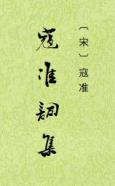 〔宋〕寇准
寇准詞集